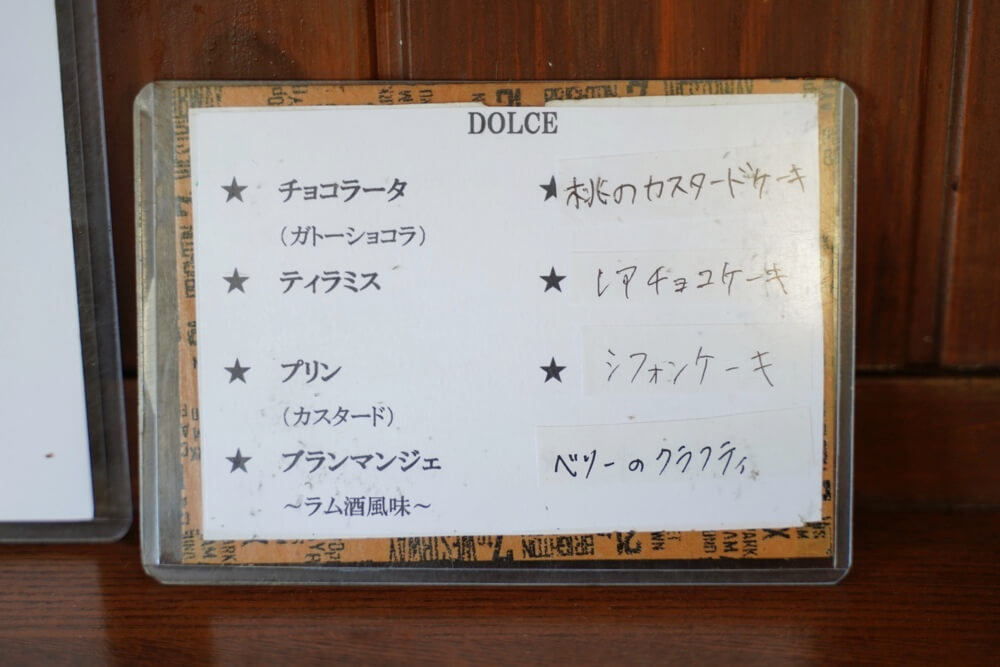 DOLCE
★ チョコラータ
(ガトーショコラ)
★ ティラミス
★ プリン
(カスタード)
★ ブランマンジェ
~ラム酒風味~
★ 桃のカスタードケーキ
★ レアチョコケーキ
★ シフォンケーキ
ベリーのクラフティ
BRIGHTON